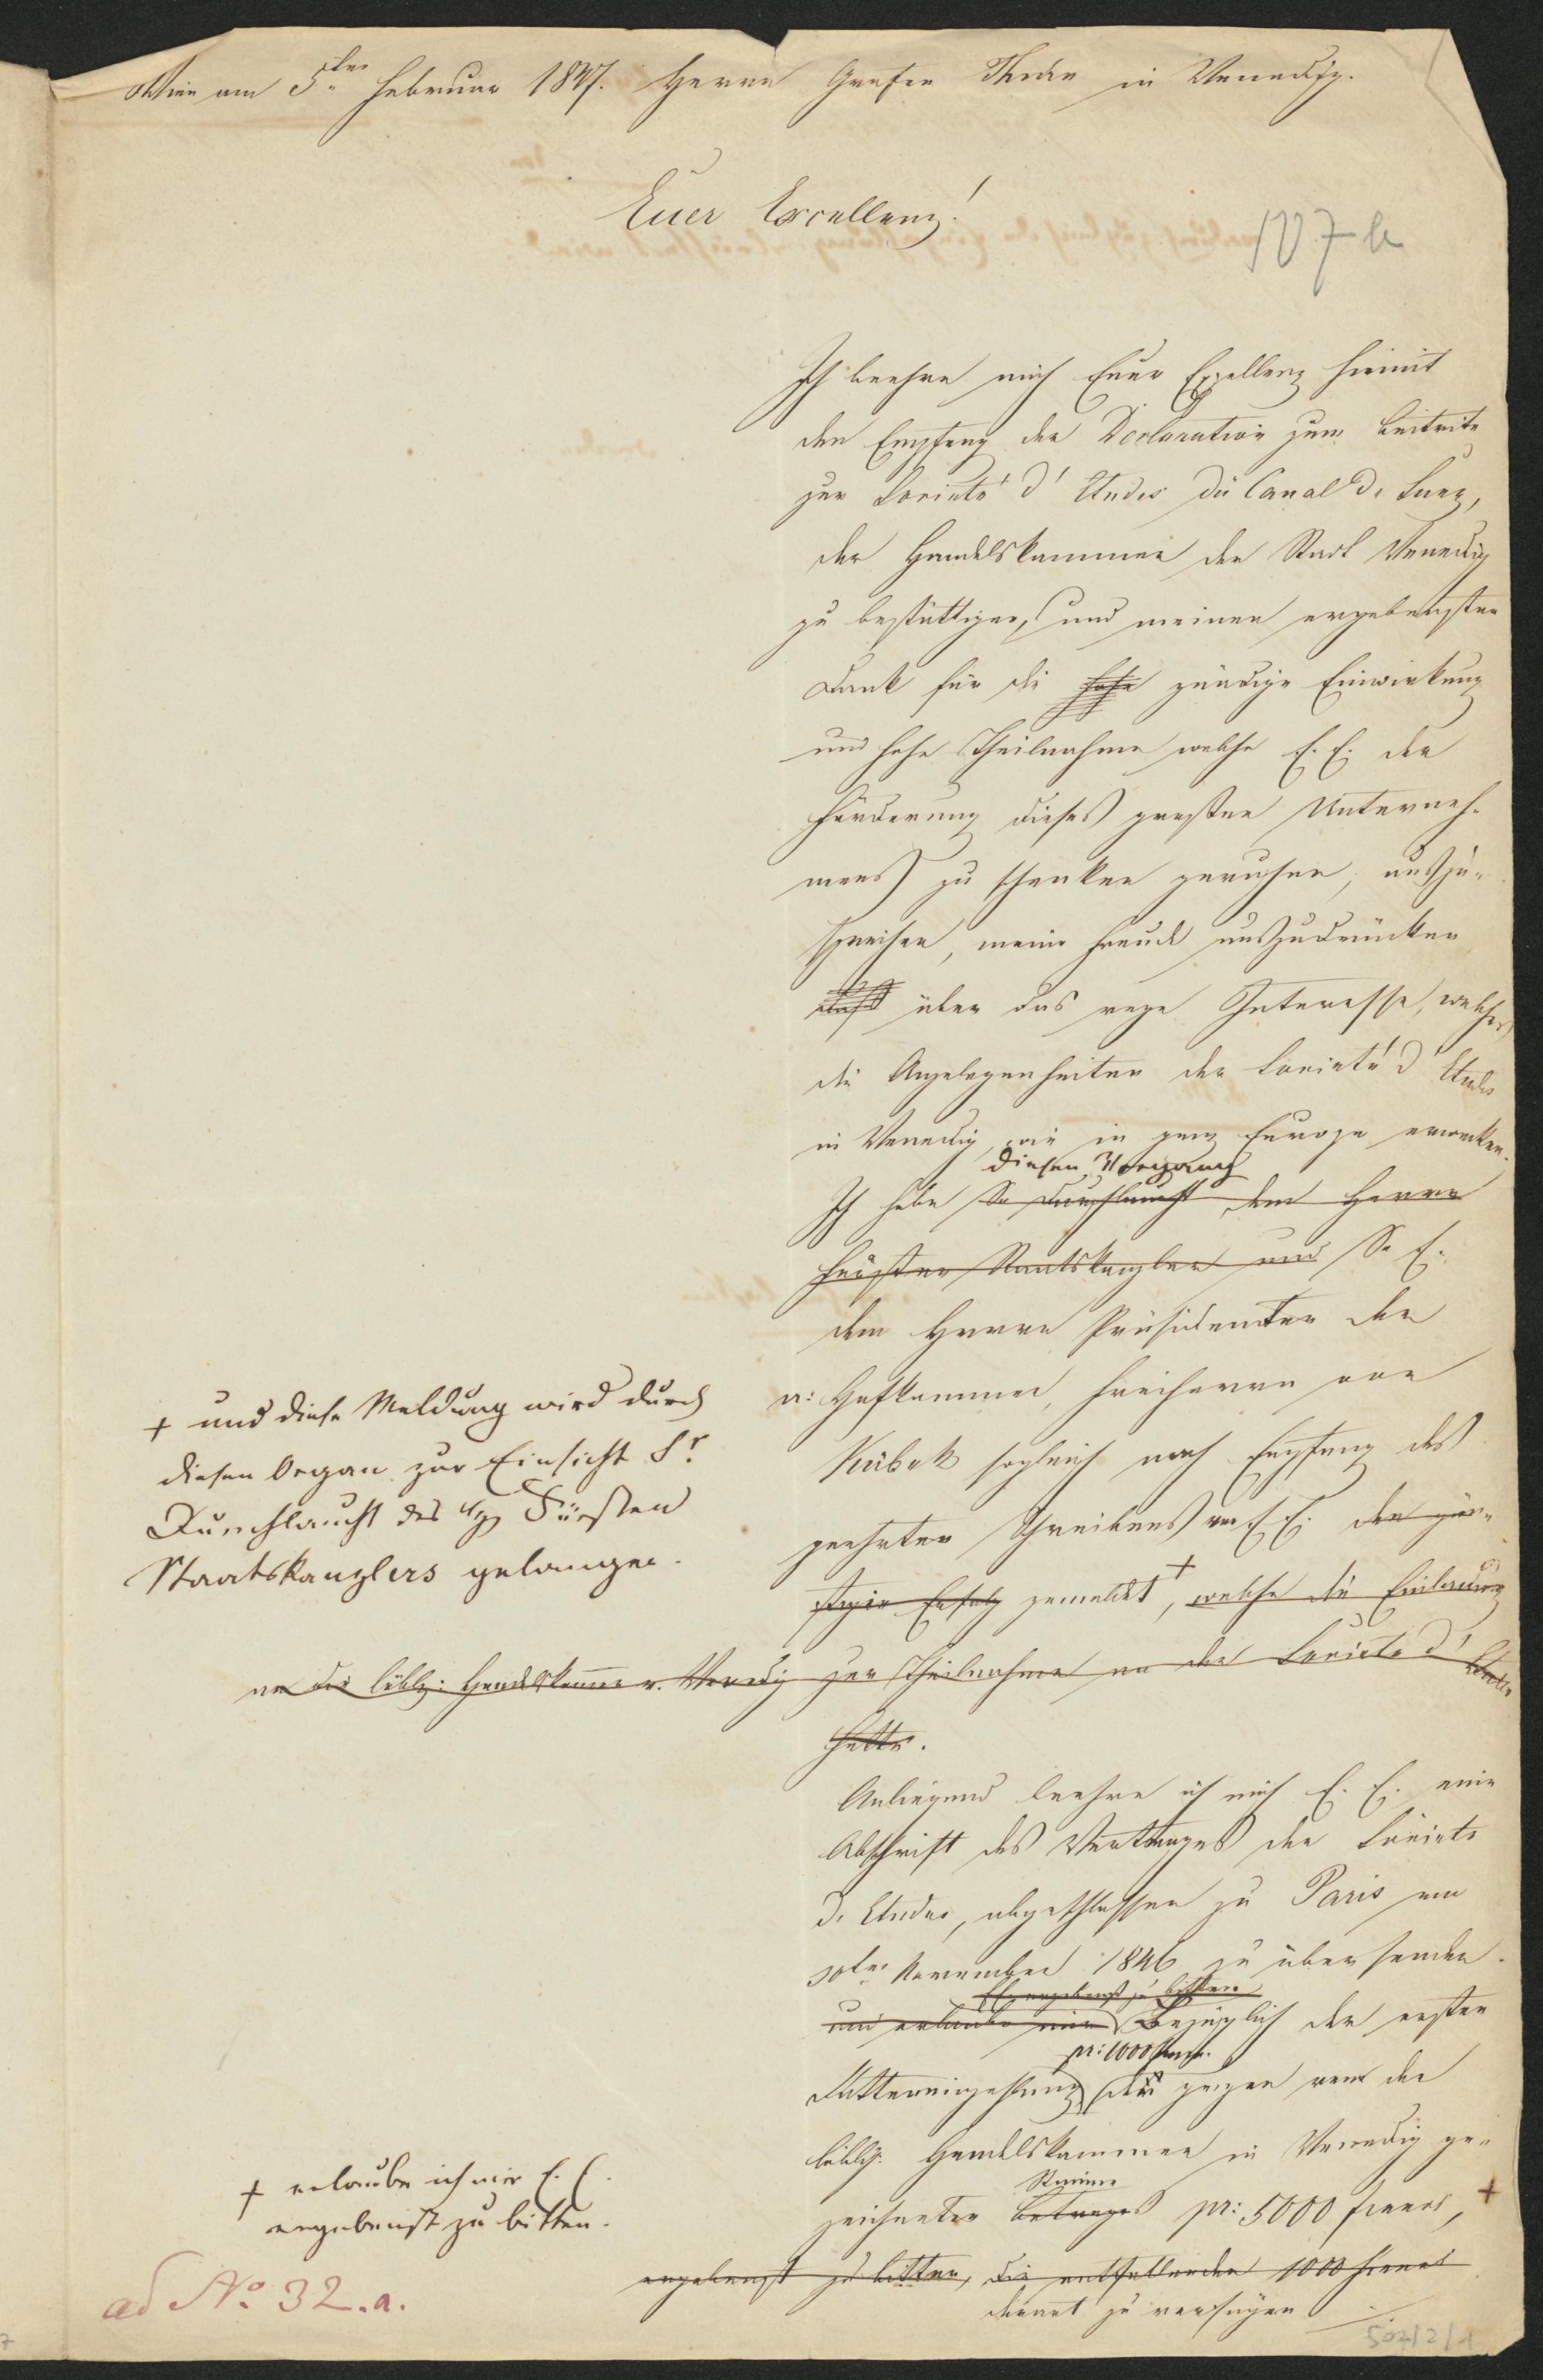 Wien am 5ten Februar 1847. Herrn Grafen Thurn in Venedig.
Euer Excellenz!
107 b
Ich beehre mich Euer Exzellenz hiemit
den Empfang der Declaration zum Beitritte
zur Societé d'Etudes du Canal de Suez,
der Handelskammer der Stadt Venedig
zu bestättigen, und meinen ergebensten
Dank für die hohe gnädige Einwirkung
und hohe Theilnahme welche E. E. der
Förderung dieses großen Unterneh-
mens zu schenken geruhen, auszu-
sprechen, meine Freude auszudrücken
über das rege Interesse, welches
die Angelegenheiten der Societé d'Etudes
in Venedig, wie in ganz Europa erwecken.
diesen Vorgang
Ich habe Sr Durchlaucht dem Herrn
Fürsten Staatskanzler und Sr E.
dem Herrn Präsidenten der
a: Hofkammer, Freiherrn von
Kübek sogleich nach Empfang des
geehrten Schreibens von E. E. den gün-
stigen Erfolg gemeldet +, welche die Einladung
an die löbl: Handelskammer v. Venedig zur Theilnahme an der Societe d'Etudes
hatte.
+ und diese Meldung wird durch
diesen Organ zur Einsicht Sr
Durchlaucht des H Fürsten
Staatskanzlers gelangen.
Anliegend beehre ich mich E. E. eine
Abschrift des Vertrages der Societe
d. Etudes, abgeschlossen zu Paris am
30ten November 1846 zu übersenden.
E E. ergebenst zu bitten
und erlaube mir Bezüglich der ersten
pr: 1000 francs.
Ratteneinzahlung des ganzen von der
löbl. Handelskammer in Venedig ge-
Summe
zeichneten Betrages pr: 5000 francs, +
ergebenst zu bitten, die entfallenden 1000 francs
derart zu verfügen
+ erlaube ich mir E. E.
ergebenst zu bitten.
ad No. 32.a.
507/2/1